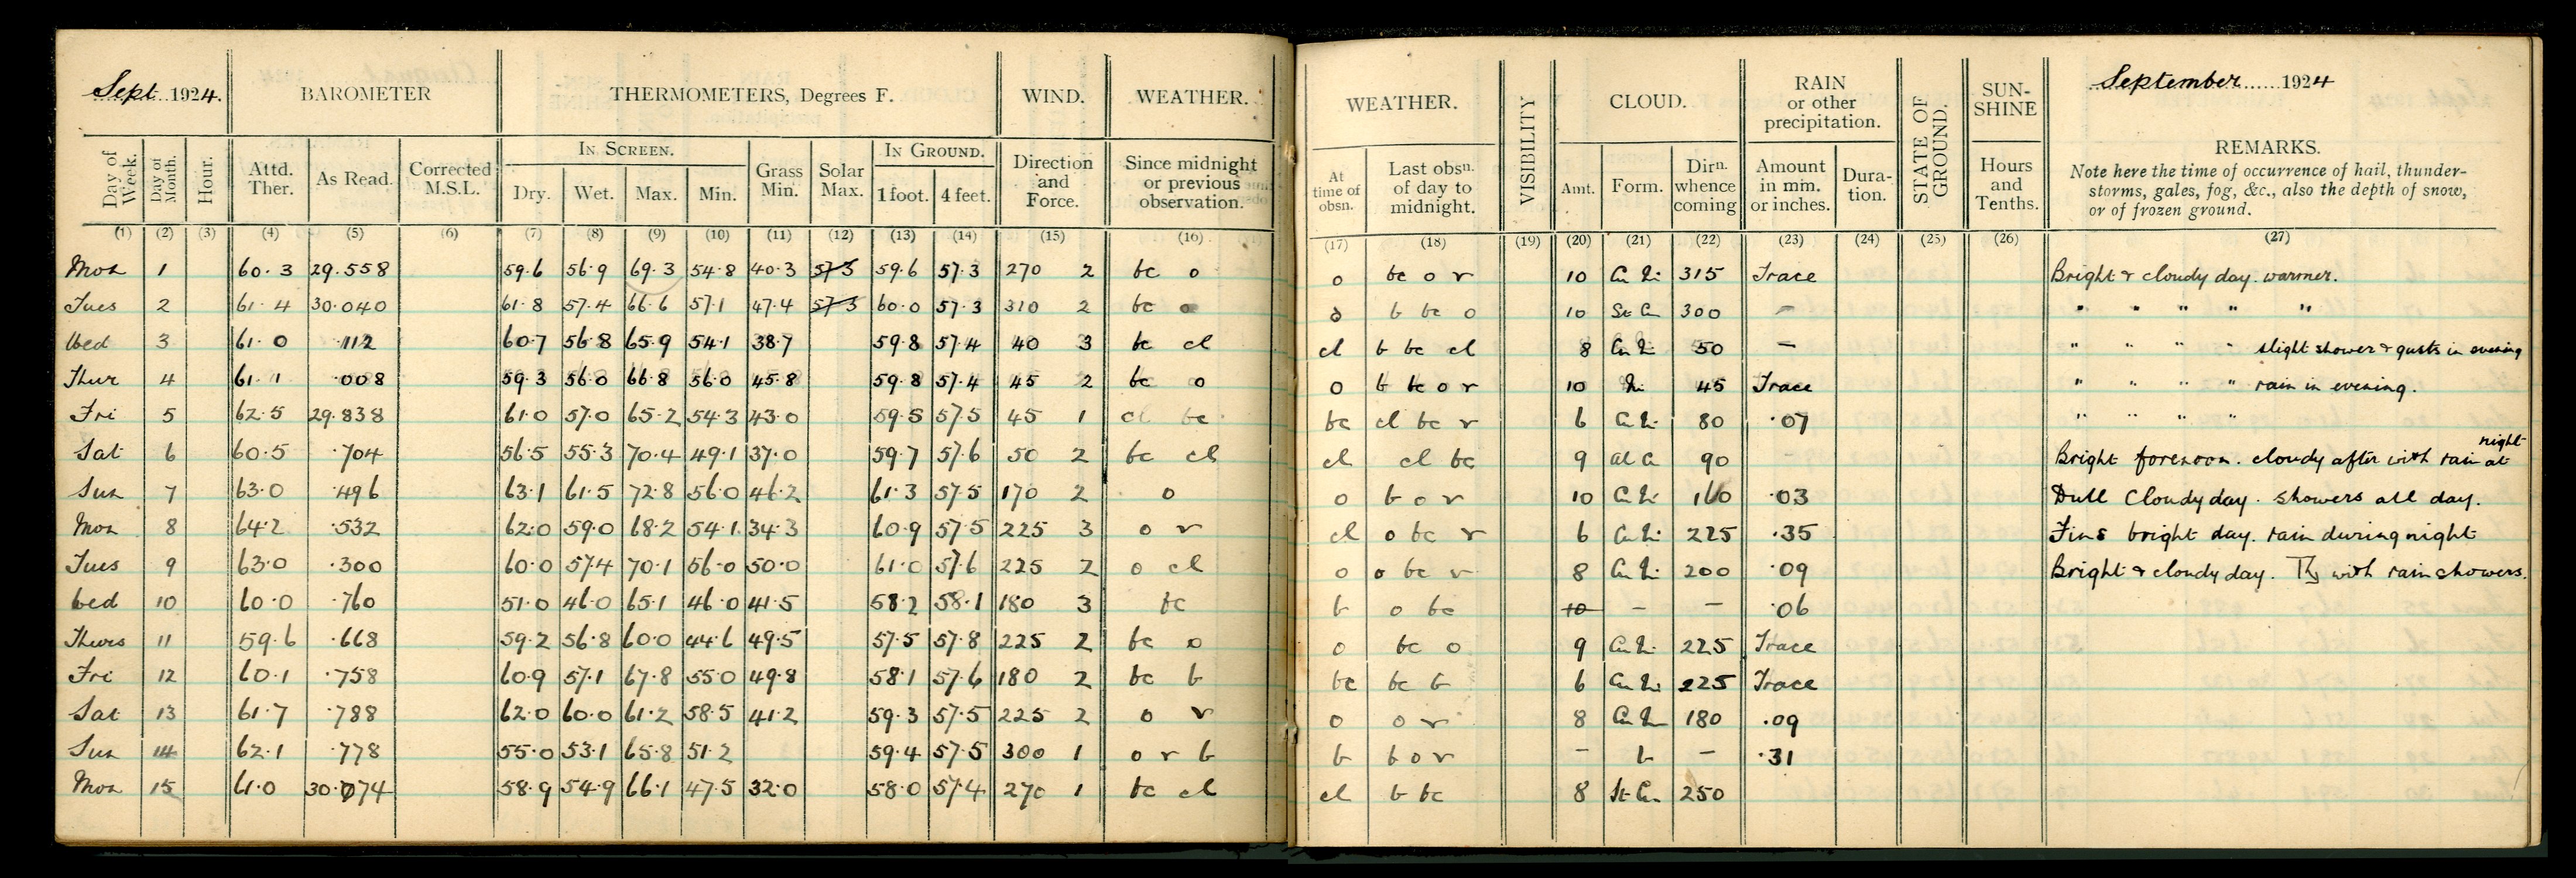 Sept 1924. BAROMETER THERMOMETERS, Degrees F. WIND. WEATHER.
Day of Week. Day of Month. Hour. Attd. Ther. As Read. Corrected M.S.L. IN SCREEN. Dry. Wet. Max. Min. Grass Min. Solar Max. IN GROUND. 1 foot. 4 feet. Direction and Force. Since midnight or previous observation.
(1) (2) (3) (4) (5) (6) (7) (8) (9) (10) (11) (12) (13) (14) (15) (16)
Mon 1 60.3 29.558 59.6 56.9 69.3 54.8 40.3 57.3 59.6 57.3 270 2 bc o
Tues 2 61.4 30.040 61.8 57.4 66.6 57.1 47.4 57.3 60.0 57.3 310 2 bc o
Wed 3 61.0 .112 60.7 56.8 65.9 54.1 38.7 59.8 57.4 40 3 bc cl
Thur 4 61.1 .008 59.3 56.0 66.8 56.0 45.8 59.8 57.4 45 2 bc o
Fri 5 62.5 29.838 61.0 57.0 65.2 54.3 43.0 59.5 57.5 45 1 cl bc
Sat 6 60.5 .704 56.5 55.3 70.4 49.1 37.0 59.7 57.6 50 2 bc cl
Sun 7 63.0 .496 63.1 61.5 72.8 56.0 46.2 61.3 57.5 170 2 o
Mon 8 64.2 .532 62.0 59.0 68.2 54.1 34.3 60.9 57.5 225 3 o r
Tues 9 63.0 .300 60.0 57.4 70.1 56.0 50.0 61.0 57.6 225 2 o cl
Wed 10 60.0 .760 51.0 46.0 65.1 46.0 41.5 58.2 58.1 180 3 bc
Thurs 11 59.6 .668 59.2 56.8 60.0 44.6 49.5 57.5 57.8 225 2 bc o
Fri 12 60.1 .758 60.9 57.1 67.8 55.0 49.8 58.1 57.6 180 2 bc b
Sat 13 61.7 .788 62.0 60.0 61.2 58.5 41.2 59.3 57.5 225 2 o r
Sun 14 62.1 .778 55.0 53.1 65.8 51.2 59.4 57.5 300 1 o r b
Mon 15 61.0 30.074 58.9 54.9 66.1 47.5 32.0 58.0 57.4 270 1 bc cl
WEATHER. VISIBILITY CLOUD. RAIN or other precipitation. STATE OF GROUND. SUN-SHINE September 1924
At time of obsn. Last obsn. of day to midnight. Amt. Form. Dirn. whence coming Amount in mm. or inches. Duration. Hours and Tenths. REMARKS.
Note here the time of occurrence of hail, thunder-
storms, gales, fog, &c., also the depth of snow,
or of frozen ground.
(17) (18) (19) (20) (21) (22) (23) (24) (25) (26) (27)
o bc o r 10 Cu Ni 315 Trace Bright & cloudy day. warmer.
o b bc o 10 St Cu 300 – " " " " "
cl b bc cl 8 Cu Ni 50 – " " " " slight shower & gusts in evening
o b bc o r 10 Ni 45 Trace " " " " rain in evening.
bc cl bc r 6 Cu Ni 80 .07 " " " "
cl cl bc 9 Al Cu 90 Bright forenoon. cloudy after with rain at night
o b o r 10 Cu Ni 160 .03 Dull Cloudy day. showers all day.
cl o bc r 6 Cu Ni 225 .35 Fine bright day. rain during night
o o bc r 8 Cu Ni 200 .09 Bright & cloudy day. with rain showers.
b o bc 10 – – .06
o bc o 9 Cu Ni 225 Trace
bc bc b 6 Cu Ni 225 Trace
o o r 8 Cu Ni 180 .09
b b o r – b – .31
cl b bc 8 St Cu 250